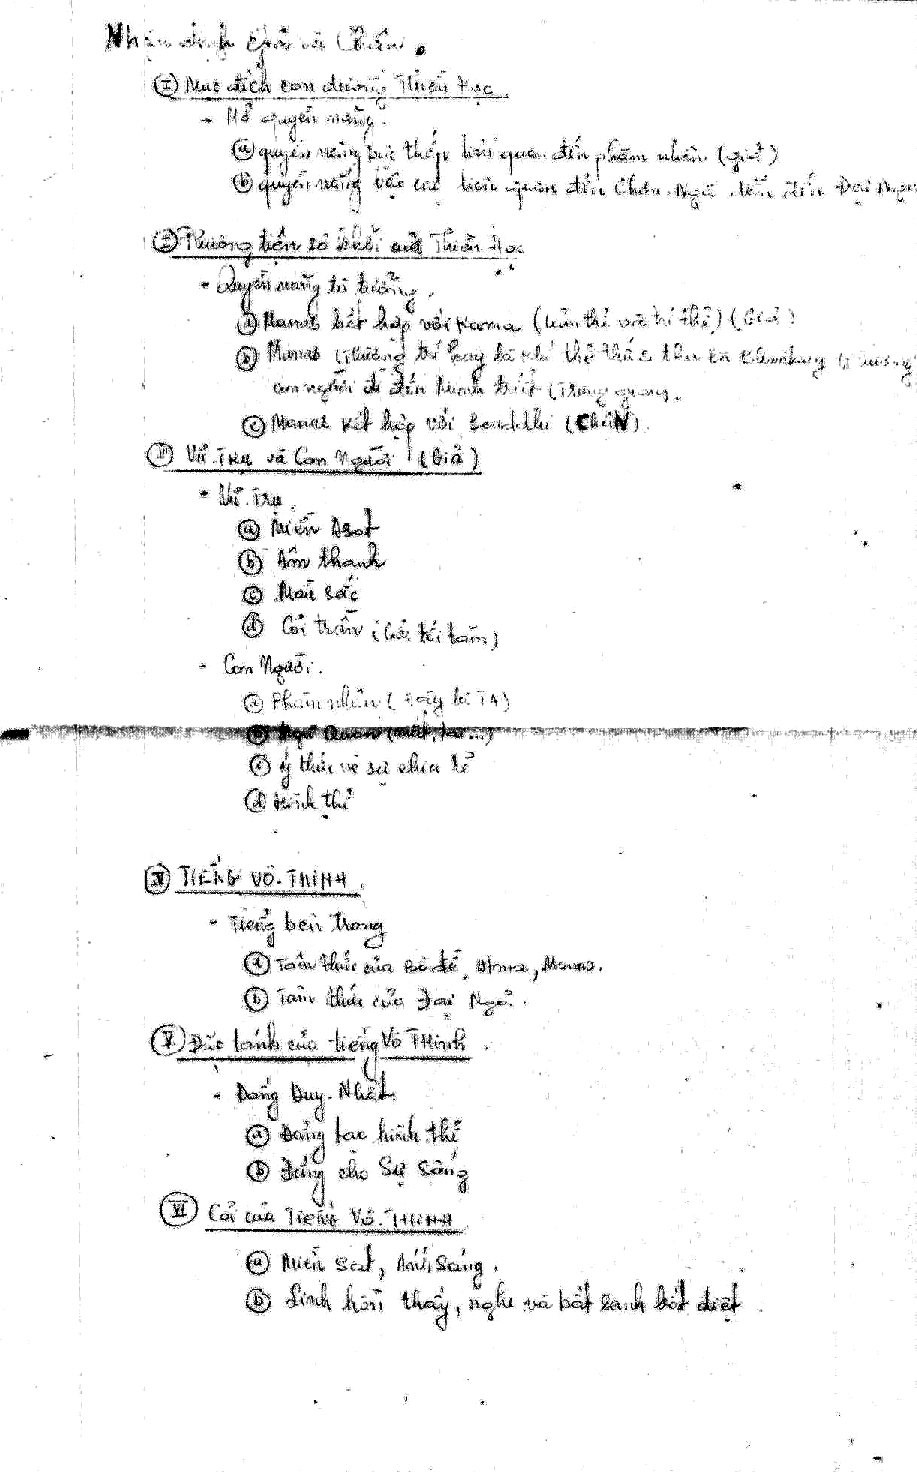 Nhận định Giả và Chân.
I Mục đích con đường Thiền Học
- Mở quyền năng.
a quyền năng bực thấp liên quan đến phàm nhân (giả)
b quyền năng bậc cao liên quan đến Chơn. Ngã dẫn đến Đại Ngã
II Phương tiện sơ khởi của Thiền Học
- Quyền năng tư tưởng.
a Manas kết hợp với Kama (Giả)
b Manas (Thường trí hay là khí thể
con người đi đến Minh triết (Trung gian).
c Manas kết hợp với Buddhi (CHÂN)
III Vũ. Trụ và Con Người (Giả)
- Vũ. Trụ.
a Miền Asat
b Âm thanh
c Màu sắc
d Cõi trần (
- Con Người.
a Phàm nhân ( đây là TA)
b Ngũ Quan (mắt, tai...)
c ý thức về sự chia lẻ
d Hình thể
IV TIẾNG VÔ. THINH
- Tiếng bên trong
a Tâm thức của Bồ đề, Atma, Manas.
b Tâm thức của Đại Ngã.
V Đặc tánh của tiếng Vô Thinh.
- Đấng Duy. Nhất
a Đấng tạo hình thể
b Đấng cho Sự Sống
VI Cõi của TIẾNG VÔ. THINH
a Miền Sat, Ánh Sáng.
b Linh hồn thấy, nghe và bất sanh bất diệt.